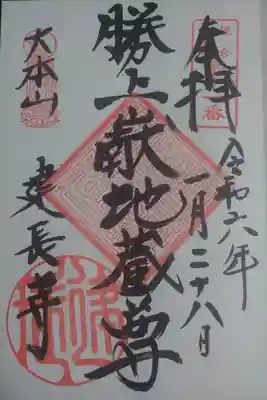 奉拝
令和六年
一月二十八日
勝上嶽地蔵尊
大本山
建長寺